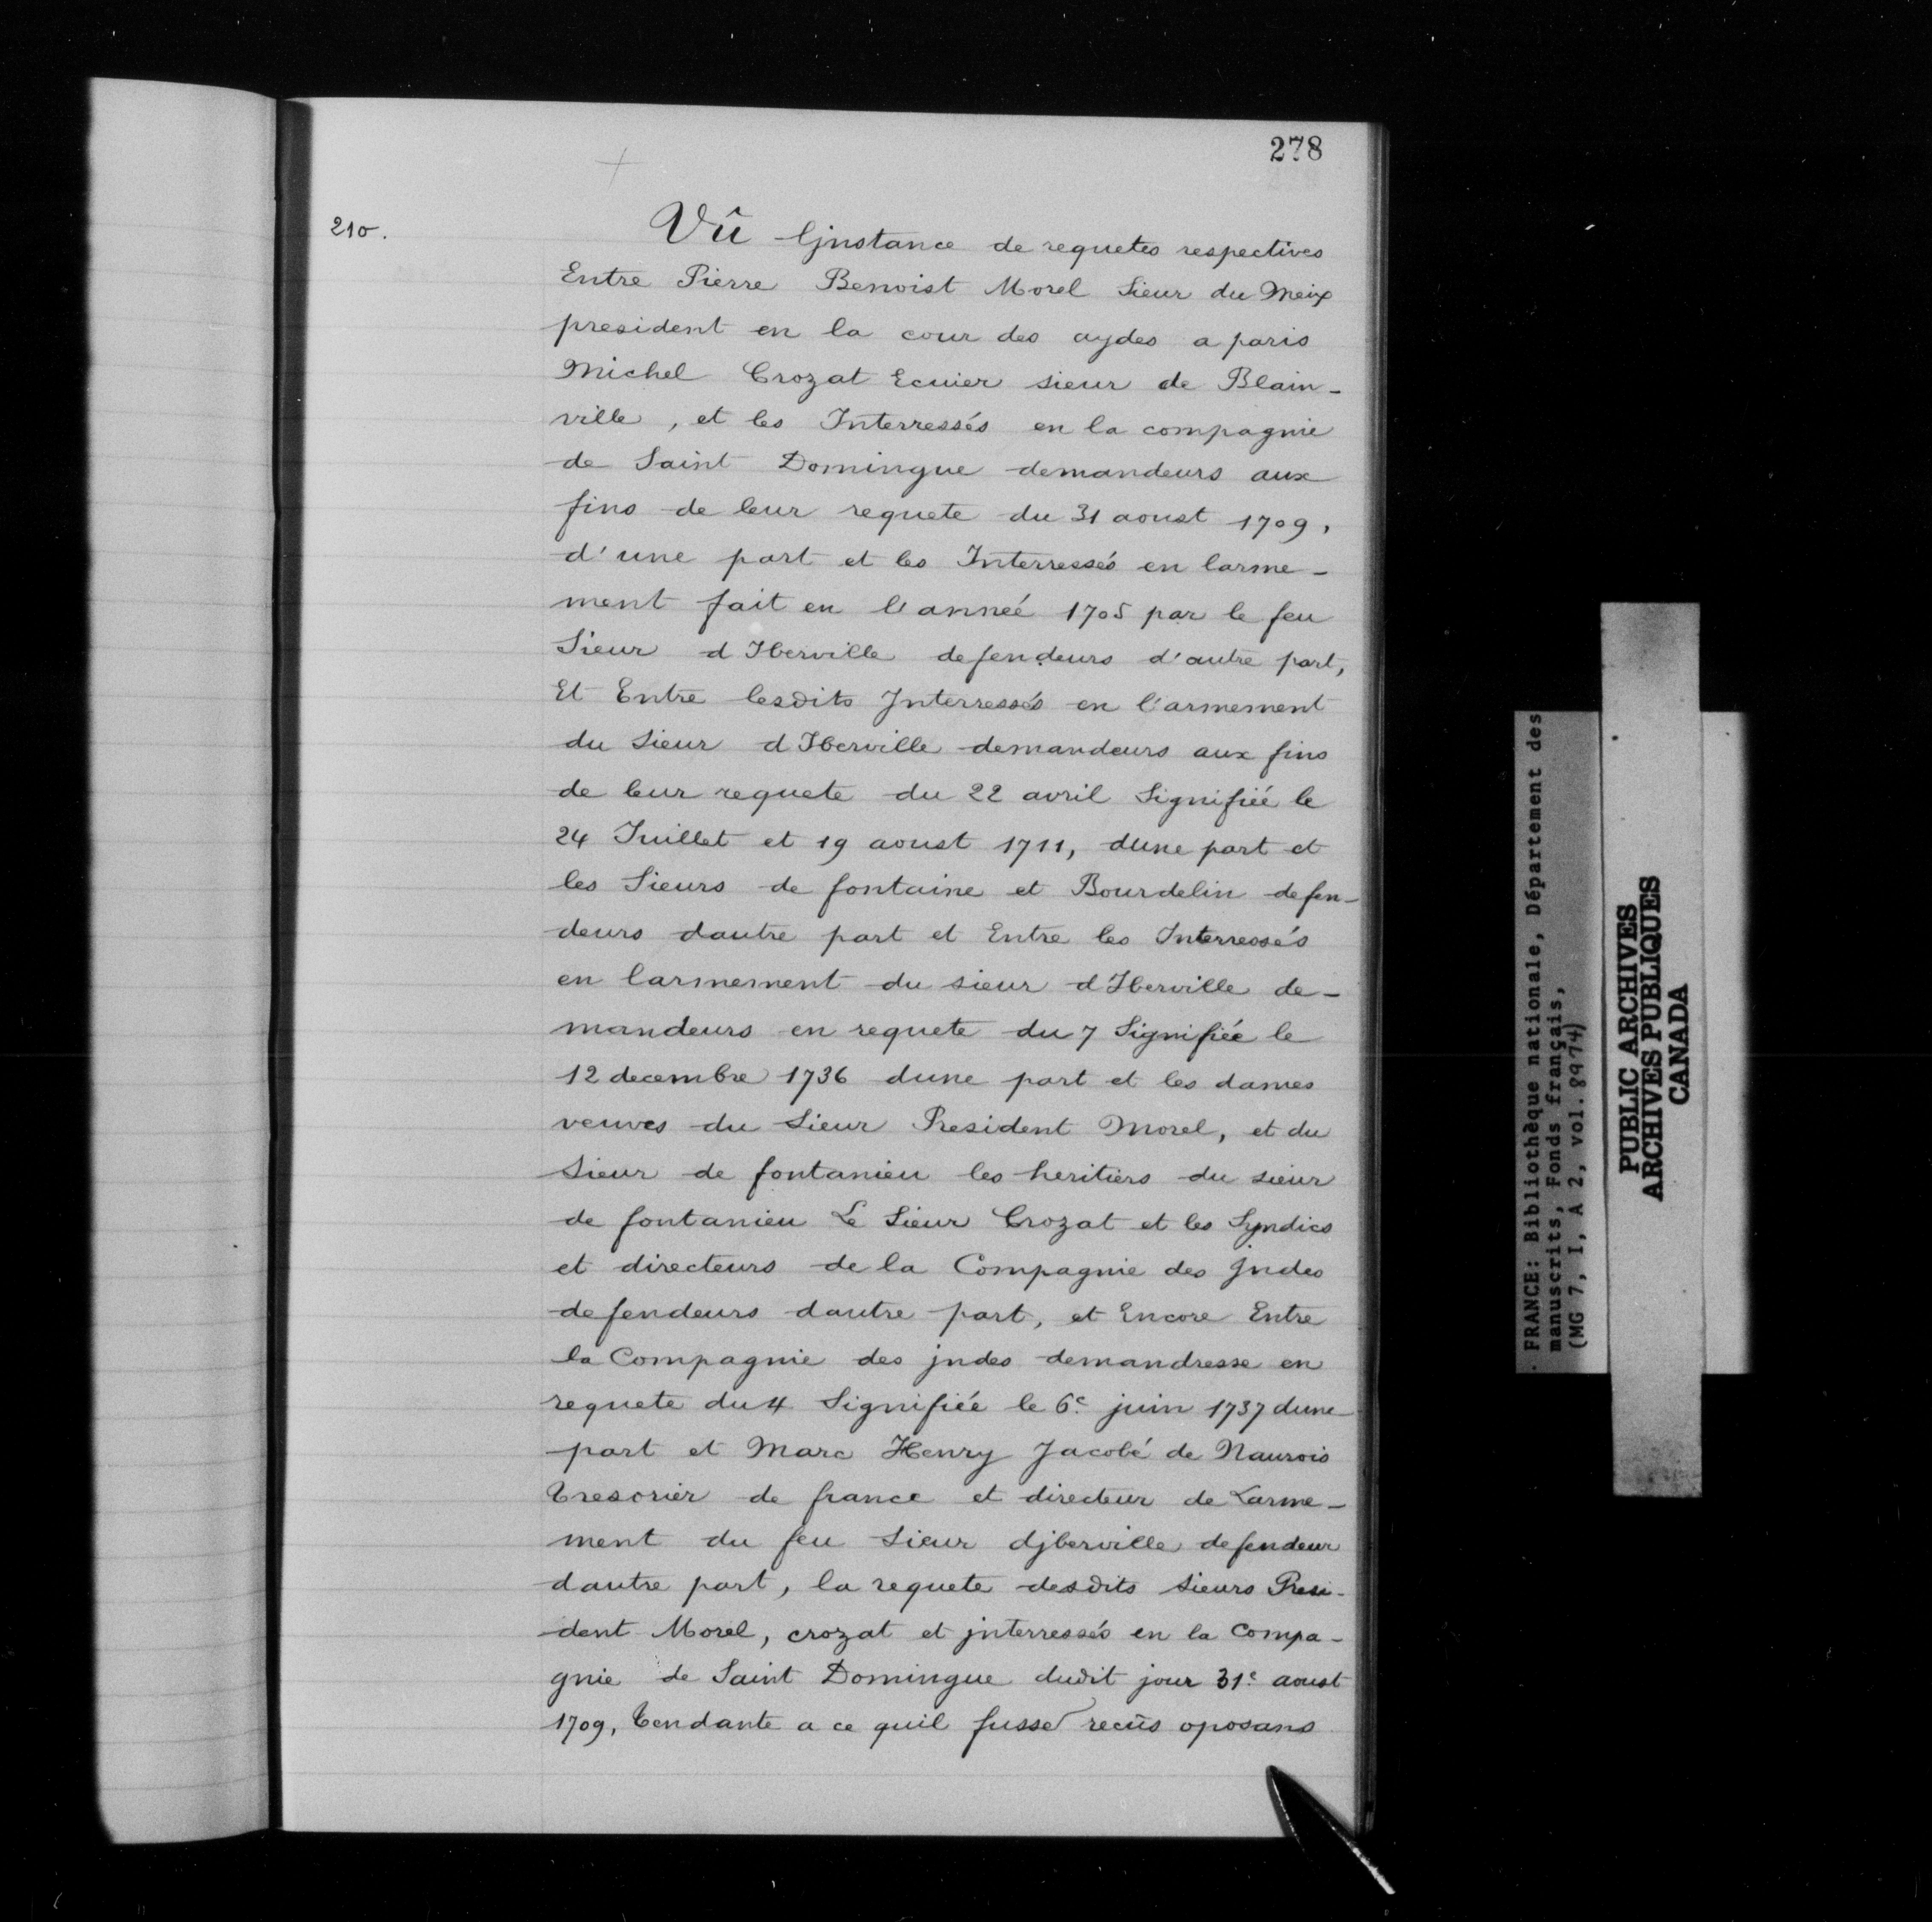 278
210.
Vû ljnstance de requetes respectives
Entre Pierre Benoist Morel Sieur du Meix
president en la cour des aydes a paris
Michel Crozat Ecuier sieur de Blain-
ville, et les Interressés en la compagnie
de Saint Domingue demandeurs aux
fins de leur requete du 31 aoust 1709,
d'une part et les Interressés en larme-
ment fait en l'anneé 1705 par le feu
Sieur d Iberville defendeurs d'autre part,
Et Entre lesdits Jnterressés en l'armement
du Sieur d Iberville demandeurs aux fins
de leur requete du 22 avril Signifiée le
24 Juillet et 19 aoust 1711, dune part et
les Sieurs de fontaine et Bourdelin defen-
deurs dautre part et Entre les Interressés
en larmement du sieur d'Iberville de-
mandeurs en requete du 7 Signifiée le
12 decembre 1736 dune part et les dames
veuves du Sieur President Morel, et du
Sieur de fontanieu les heritiers du sieur
de fontanieu Le Sieur Crozat et les Syndics
et directeurs de la Compagnie des Jndes
defendeurs dautre part, et Encore Entre
la Compagnie des jndes demandresse en
requete du 4 Signifiée le 6e juin 1737 dune
part et Marc Henry Jacobé de Naurois
Tresorier de france et directeur de Larme-
ment du feu Sieur djberville defendeur
dautre part, la requete desdits Sieurs Presi-
dent Morel, crozat et jnterressés en la Compa-
gnie de Saint Domingue dudit jour 31e aoust
1709, Tendante a ce quil fusse recûs oposans
. FRANCE: Bibliothèque nationale, Département des
manuscrits, Fonds français,
(MG 7, I, A 2, vol. 8974)
PUBLIC ARCHIVES
ARCHIVES PUBLIQUES
CANADA